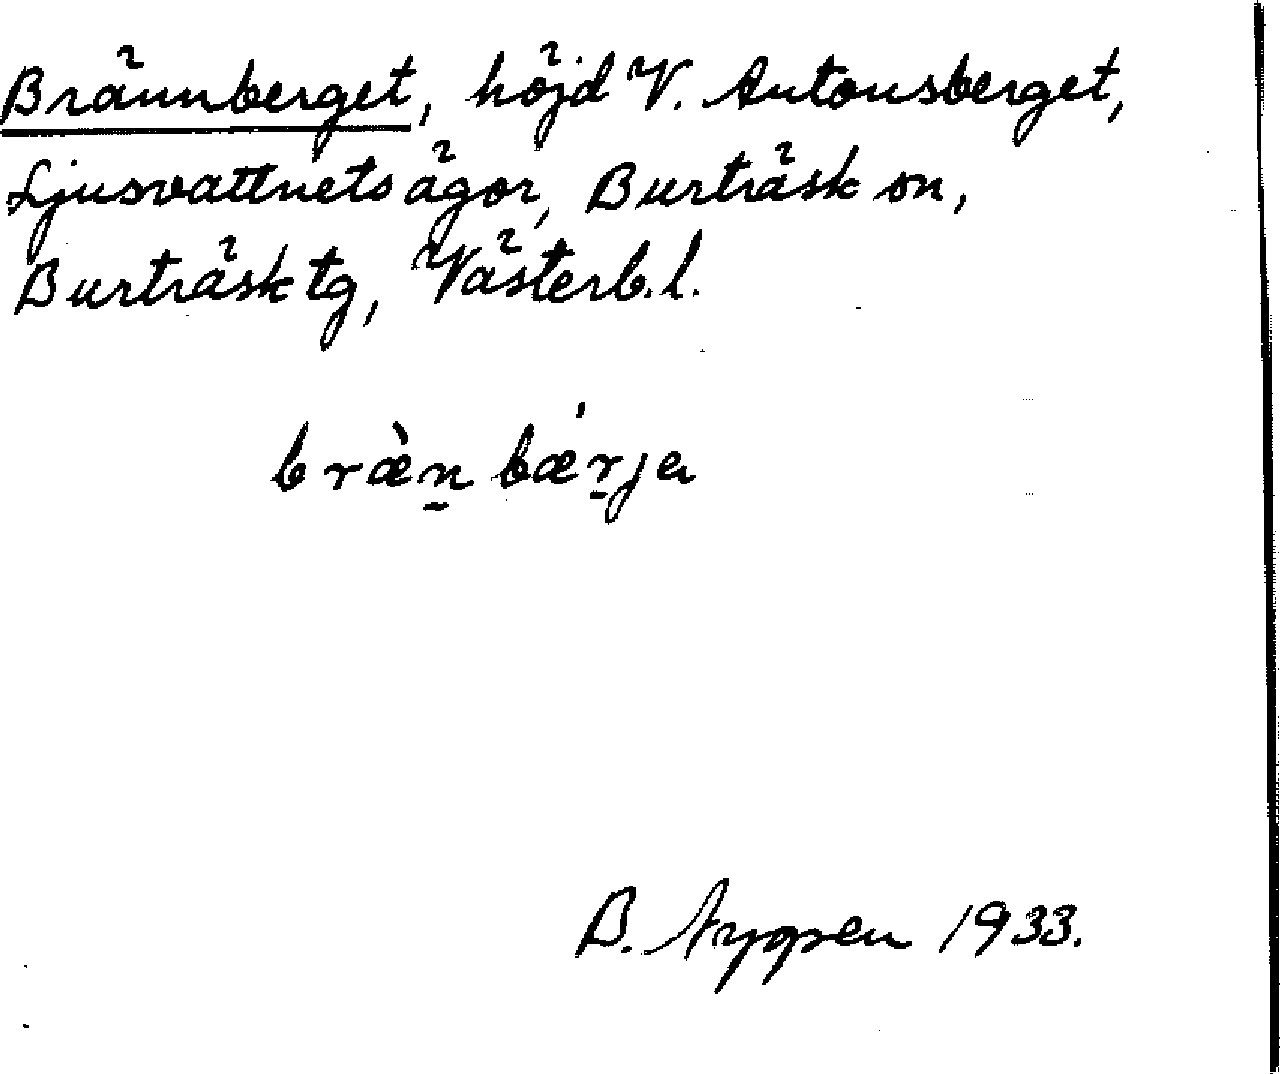 Brännberget, höjd V. Antonsberget,
Ljusvattnets ägor, Burträsk sn,
Burträsk tg, Västerb. l.
bræ̀n̠ bǽr̠ja
B. Nygren 1933.